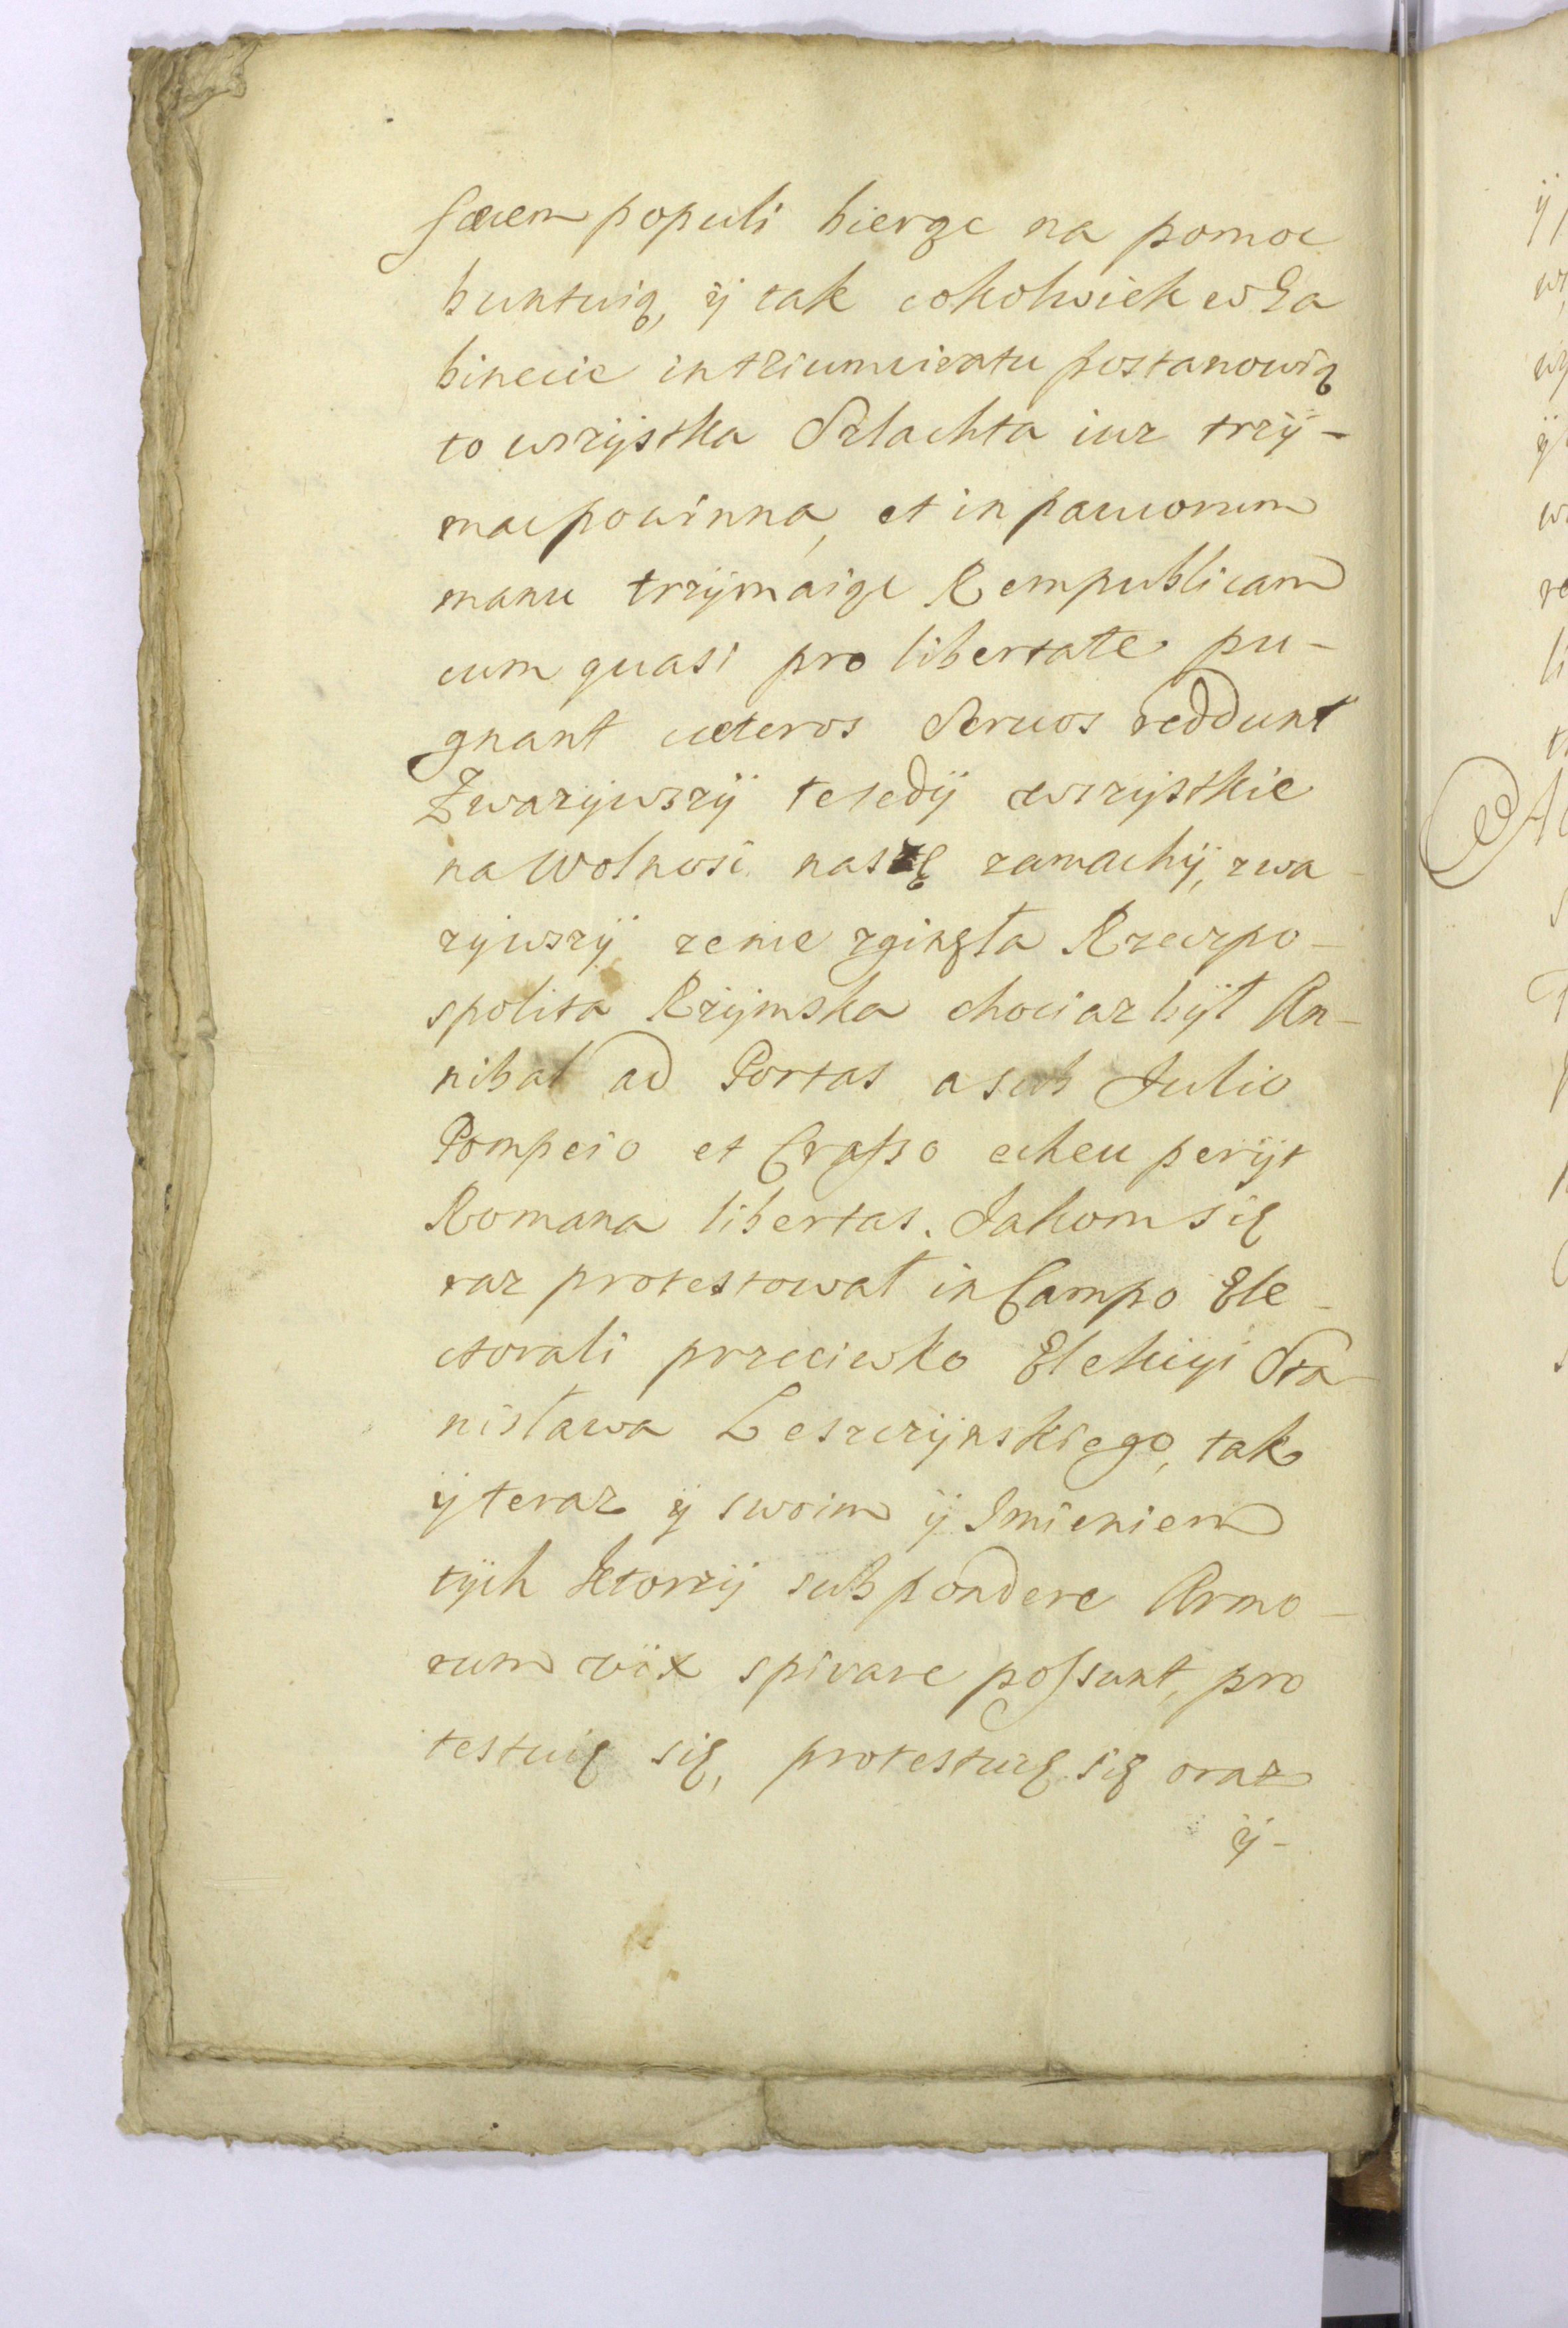 fæcem populi bierąc na pomoc
buntuią, ÿ tak cokolwiek w Ga
binecie in triumviratu postanowią
to wszÿstka Szlachta iuz trzÿ-
mac powinna, et in paucorum
manu trzÿmaiąc Rempublicam
cum quasi pro libertate pu-
gnant cæteros Servos reddunt
Zwazÿwszÿ tesedÿ wszÿstkie
na wolnosc naszę zamachÿ, zwa-
zÿwszÿ zenie zginęła Rzeczpo-
spolita Rzÿmska chociaz bÿł An-
nibal ad Portas a sub Julio
Pompeio et Crasso eheu perÿt
Romana libertas. Jakom się
raz protestował in Campo Ele-
ctorali przeciwko Elekcÿi Sta-
nisława Leszczÿnskiego, tak
ÿ teraz ÿ swoim ÿ Jmieniem
tÿch Ktorzÿ sub pondere Armo-
rum vix spirare possunt, pro
testuię się, protestuię się oraz
ÿ-